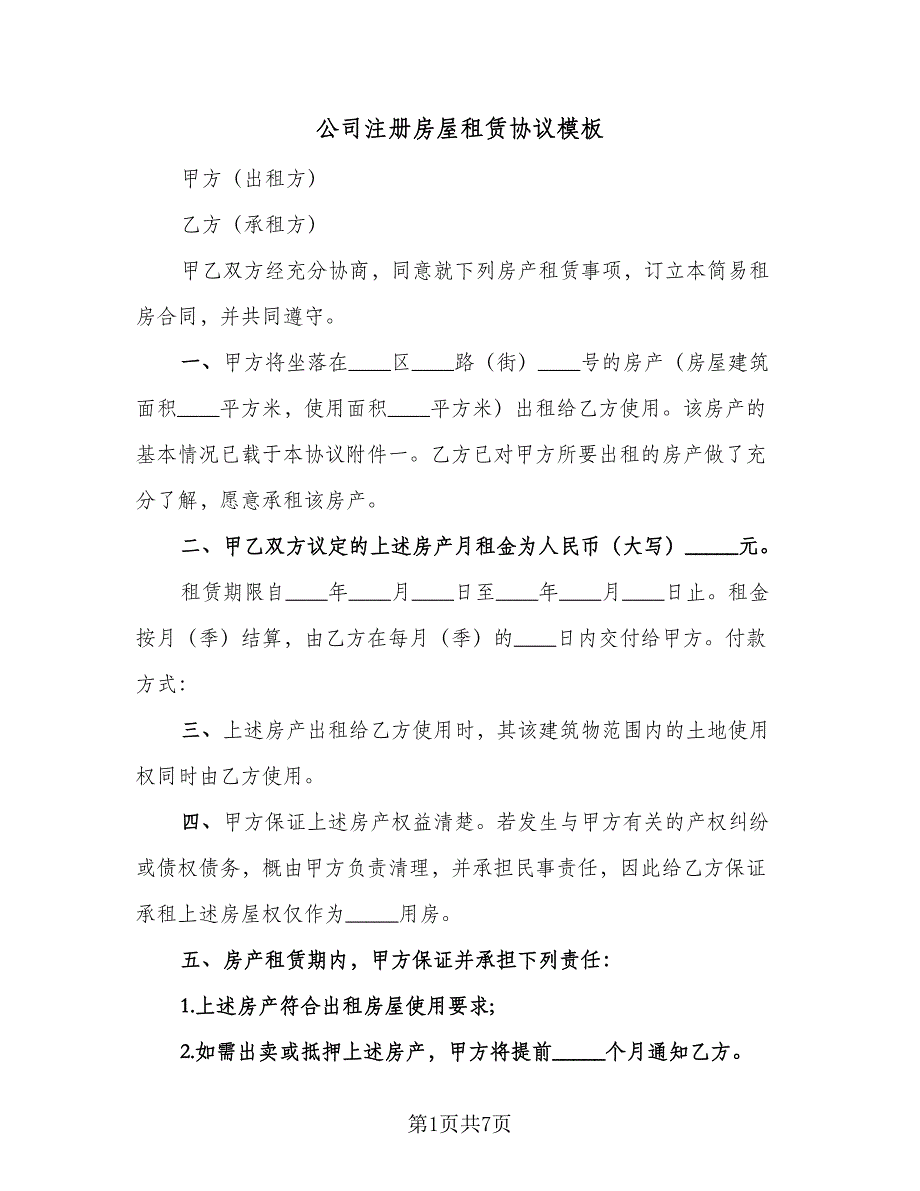 公司注册房屋租赁协议模板
甲方（出租方）
乙方（承租方）
甲乙双方经充分协商，同意就下列房产租赁事项，订立本简易租
房合同，并共同遵守。
一、甲方将坐落在____区____路（街）____号的房产（房屋建筑
面积____平方米，使用面积____平方米）出租给乙方使用。该房产的
基本情况已载于本协议附件一。乙方已对甲方所要出租的房产做了充
分了解，愿意承租该房产。
二、甲乙双方议定的上述房产月租金为人民币（大写）_____元。
租赁期限自____年____月____日至____年____月____日止。租金
按月（季）结算，由乙方在每月（季）的____日内交付给甲方。付款
方式：
三、上述房产出租给乙方使用时，其该建筑物范围内的土地使用
权同时由乙方使用。
四、甲方保证上述房产权益清楚。若发生与甲方有关的产权纠纷
或债权债务，概由甲方负责清理，并承担民事责任，因此给乙方保证
承租上述房屋权仅作为_____用房。
五、房产租赁期内，甲方保证并承担下列责任：
1.上述房产符合出租房屋使用要求;
2.如需出卖或抵押上述房产，甲方将提前_____个月通知乙方。
第1页共7页